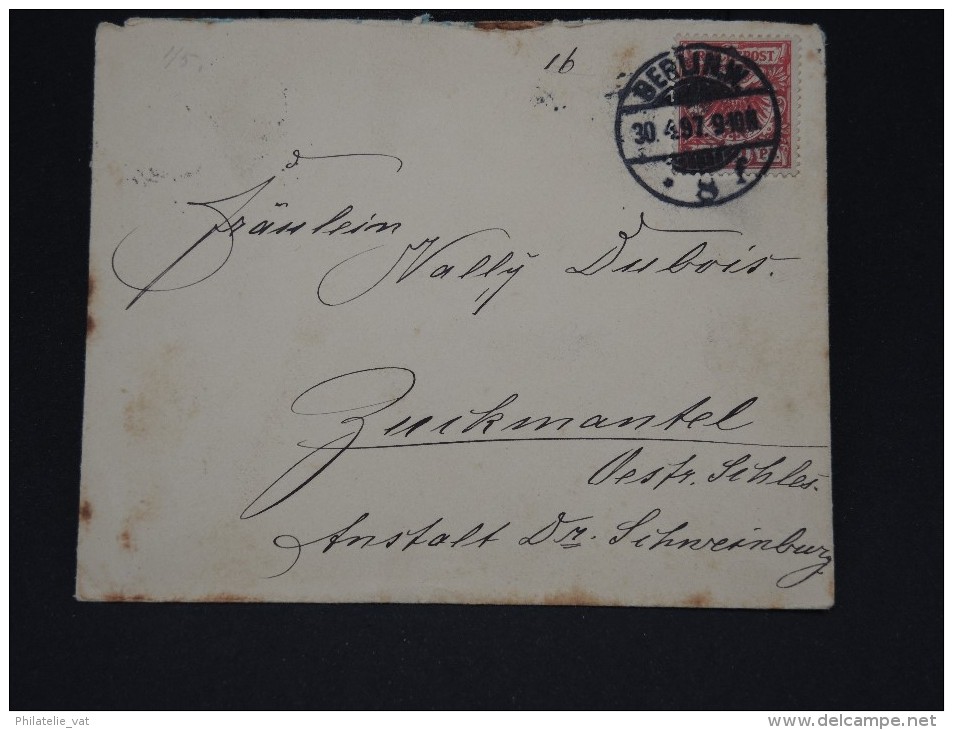 16
REICHSPOST
BERLIN.W.
30.4.97.9-10N.
8 f
Fräulein
Wally Dubois.
Zuckmantel
Oestr. Schles.
Anstalt Dr. Schweinburg
Philatelie_vat
www.delcampe.net